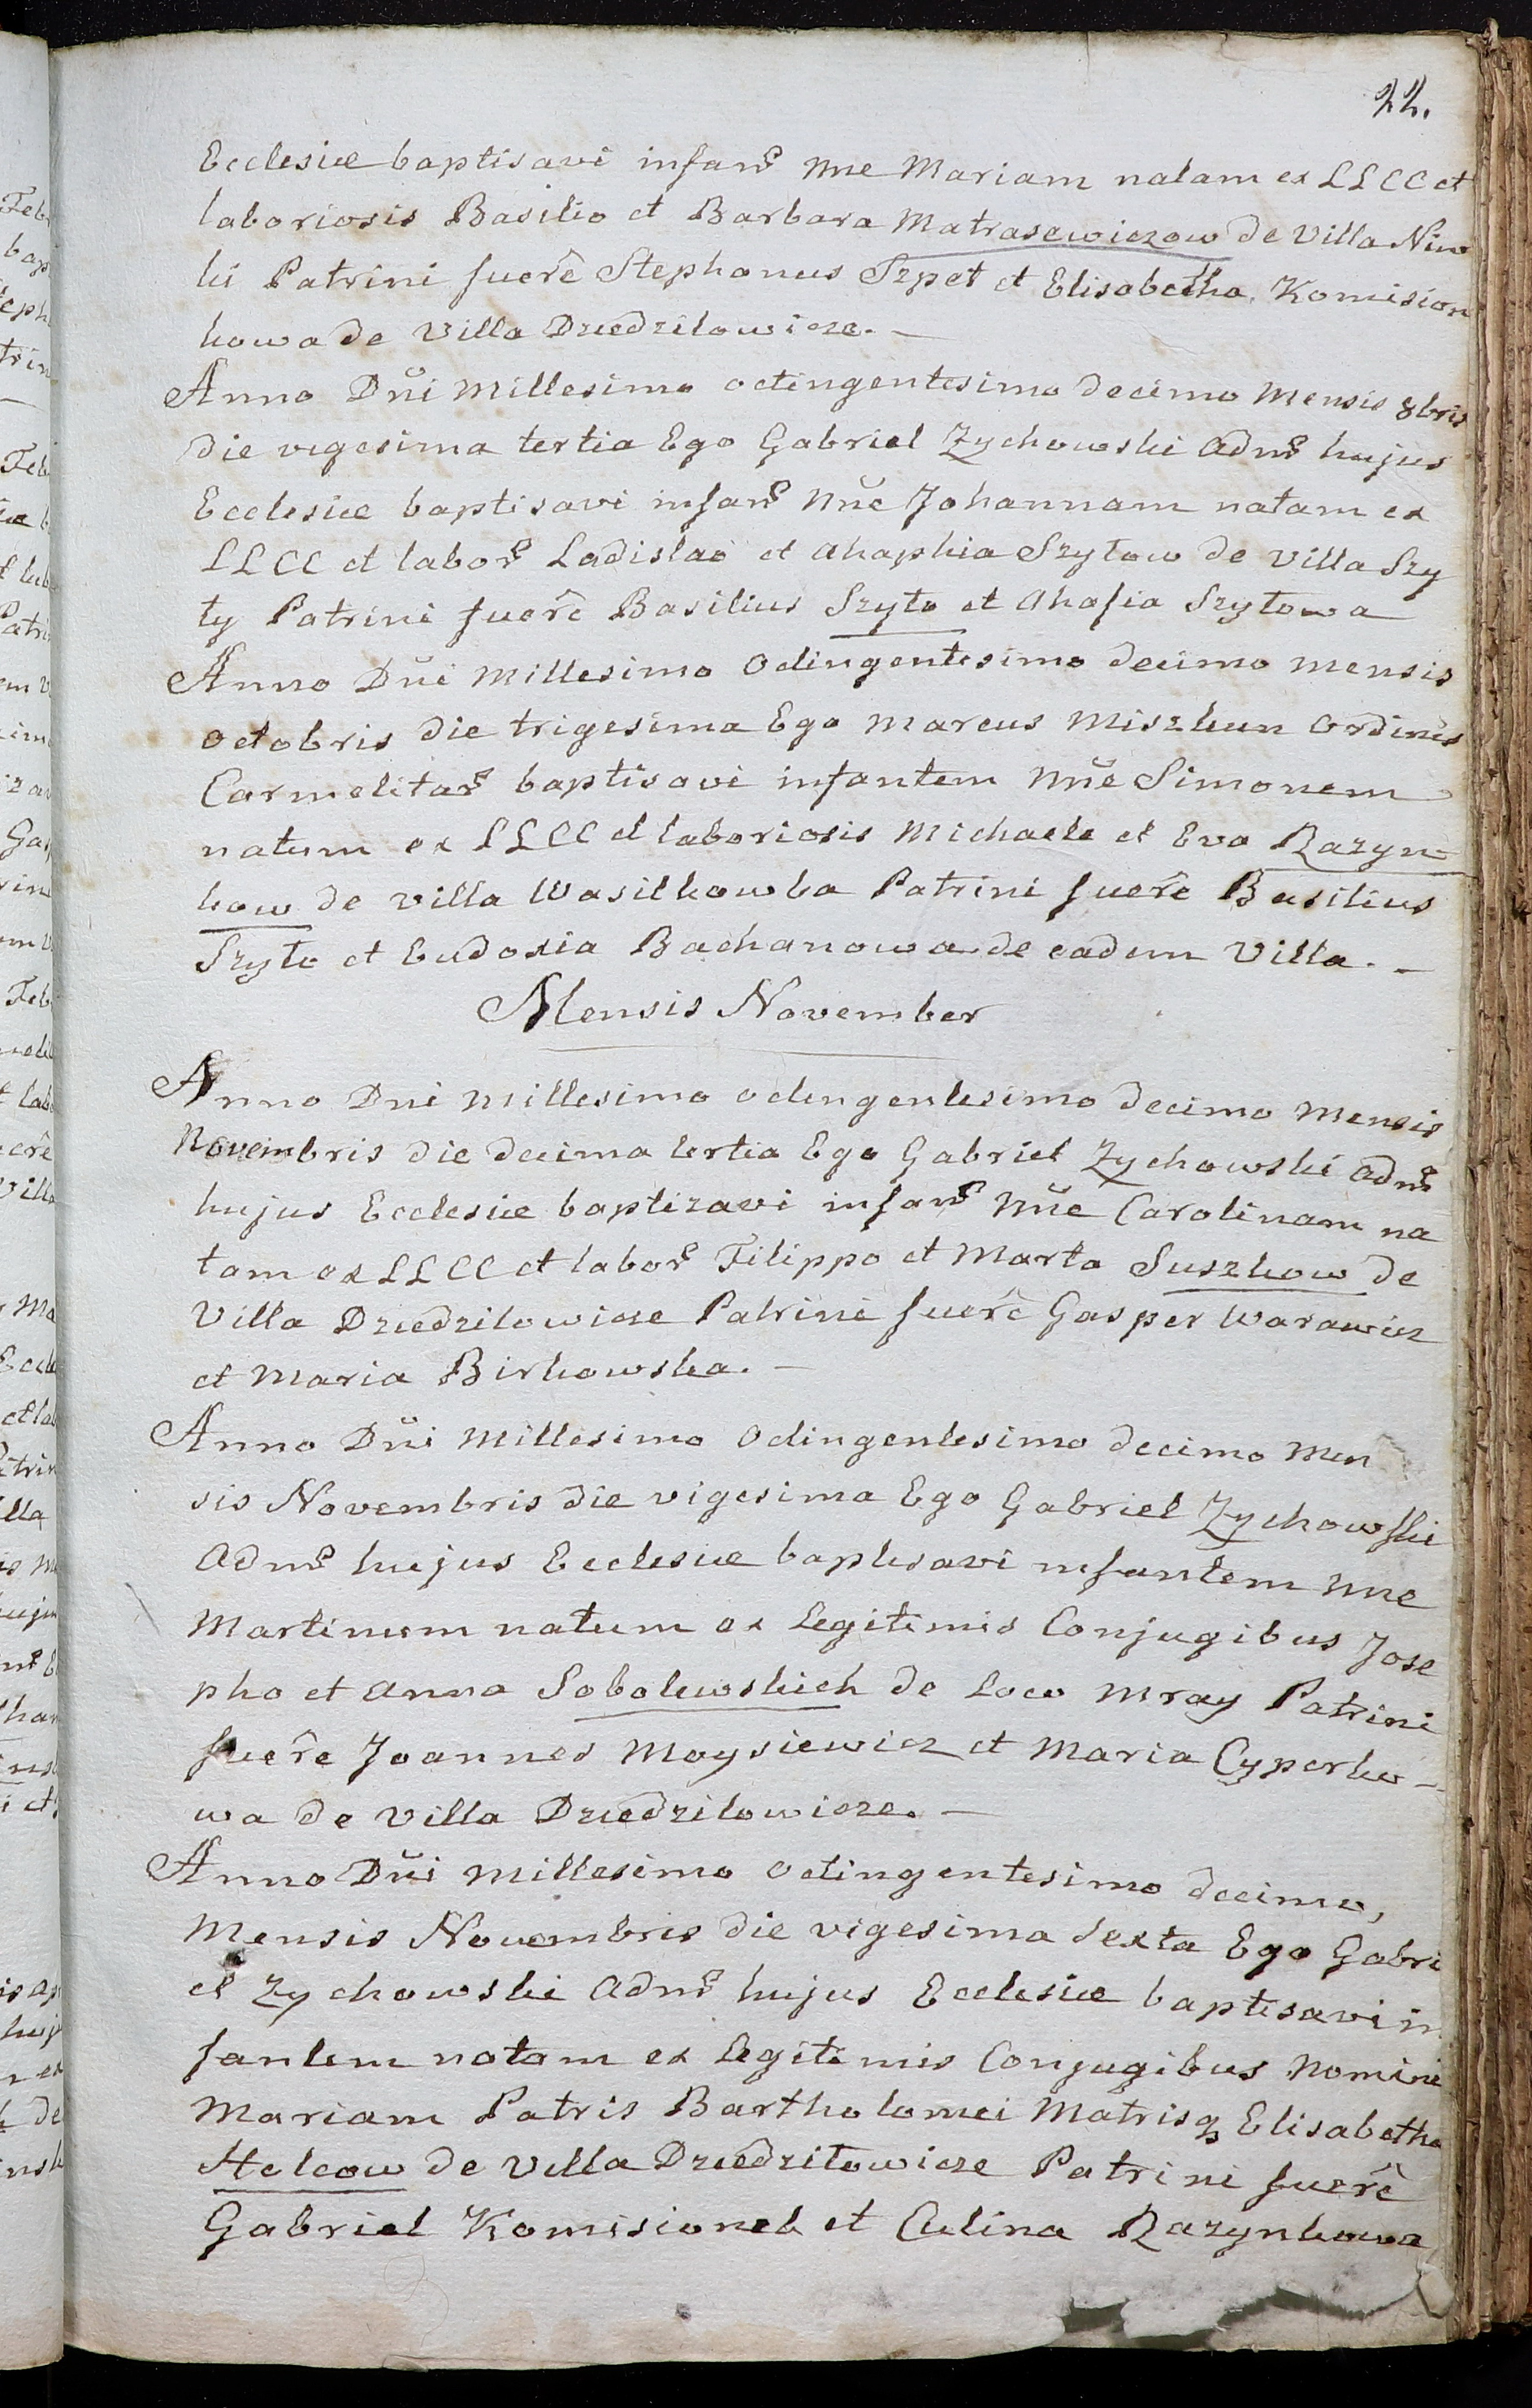 22.
Ecclesiæ baptisavi infan͠s nne Mariam natam ex LLCC et
laboriosis Basilio et Barbara Matrasewiczow de Villa Niw
ki Patrini fuerê Stephanus Szpet et Elisabetha Komision
kowa de Villa Dziedzilowicze. –
Anno Dñi Millesimo octingentesimo decimo Mensis 8bris
die vigesima tertia Ego Gabriel Zychowski Adm͠s hujus
Ecclesiæ baptisavi infan͠s nñe Johannam natam ex
LLCC et labor͠s Ladislao et Ahaphia Szytow de Villa Szy
ty Patrini fuerê Basilius Szyto et Ahafia Szytowa
Anno Dñi Millesimo Octingentesimo decimo mensis
Octobris die trigesima Ego Marcus Miszkun Ordinis
Carmelitar͠s baptisavi infantem nñe Simonem
natum ex LLCC et laboriosis Michaele et Eva Razyn-
kow de Villa Wasilkowka Patrini fuerê Basilius
Szyto et Eudoxia Bachanowa de eadem Villa. –
Mensis November
Anno Dni Millesimo octingentesimo decimo Mensis
Novembris die decima tertia Ego Gabriel Zychowski adm͠s
hujus Ecclesiæ baptizavi infan͠s nñe Carolinam na
tam ex LLCC et labor͠s Filippo et Marta Suszkow de
Villa Dziedzilowicze Patrini fuerê Gasper Warawicz
et Maria Birkowska. –
Anno Dñi Millesimo Octingentesimo decimo Men
sis Novembris die vigesima Ego Gabriel Zychowski
Adm͠s hujus Ecclesiæ baptisavi infantem nne
Martinum natum ex Legitimis Conjugibus Jose
pho et Anna Sobolewskich de Loco Mray Patrini
fuerê Joannes Moysiewicz et Maria Cyperko-
wa de Villa Dziedzilowicze. –
Anno Dñi Millesimo Octingentesimo decimo,
Mensis Novembris die vigesima sexta Ego Gabri
el Zychowski Adm͠s hujus Ecclesiæ baptisavi in
fantem natam ex Legitimis Conjugibus Nomine
Mariam Patris Bartholomei Matrisq Elisabetha
Helcow de Villa Dziedzitowicze Patrini fuerê
Gabriel Komisionek et Culina Razynkowa